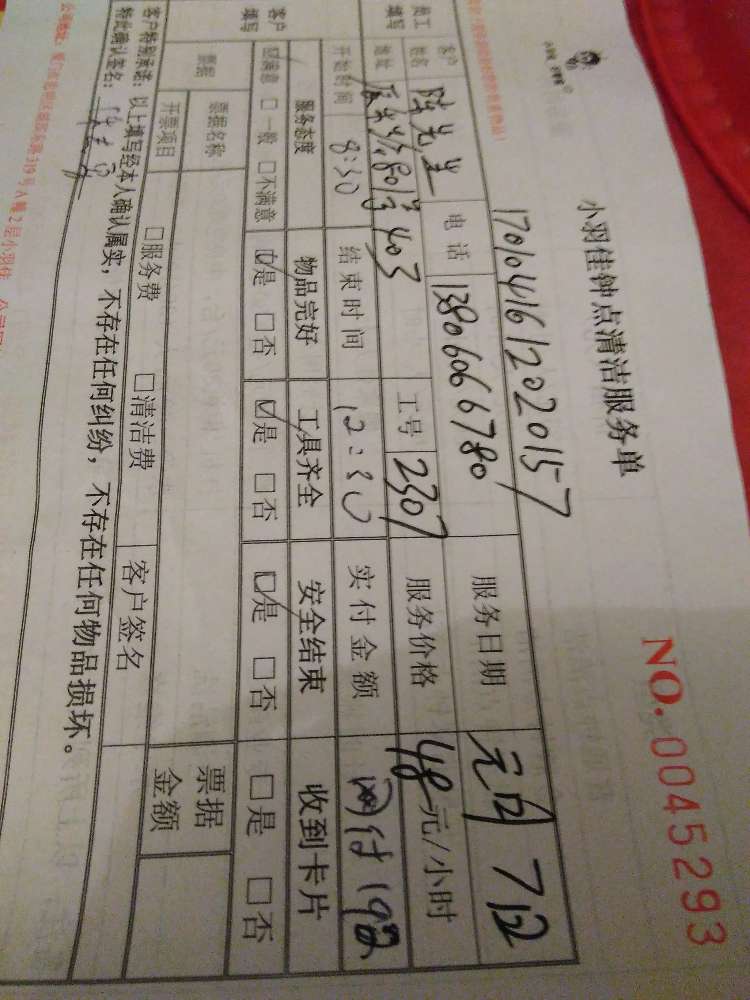 小羽佳钟点清洁服务单
NO. 0045293
1701041612020157
员工填写 客户姓名 陈先生 电话 13806066780 服务日期
地址 801号403 工号 2307 服务价格 48元/小时
开始时间 8:30 结束时间 12:30 实付金额 网付192
客户填写 服务态度 物品完好 工具齐全 安全结束 收到卡片
☑满意 □一般 □不满意 ☑是 □否 ☑是 □否 ☑是 □否 □是 □否
票据 票据名称 票据金额
开票项目 □服务费 □清洁费 客户签名
客户特别承诺：以上填写经本人确认属实，不存在任何纠纷，不存在任何物品损坏。
特此确认签名：